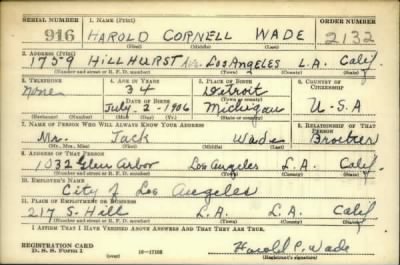 SERIAL NUMBER 1. NAME (Print) ORDER NUMBER
916 HAROLD CORNELL WADE 2132
(First) (Middle) (Last)
2. ADDRESS (Print)
1759 HILLHURST Av. LOS ANGELES L.A. Calif.
(Number and street or R. F. D. number) (Town) (County) (State)
3. TELEPHONE 4. AGE IN YEARS 5. PLACE OF BIRTH 6. COUNTRY OF CITIZENSHIP
None 34 Detroit
DATE OF BIRTH (Town or county)
July 2, 1906 Michigan U.S.A
(Exchange) (Number) (Mo.) (Day) (Yr.) (State or country)
7. NAME OF PERSON WHO WILL ALWAYS KNOW YOUR ADDRESS 8. RELATIONSHIP OF THAT PERSON
Mr. Jack Wade Brother
(Mr., Mrs., Miss) (First) (Middle) (Last)
9. ADDRESS OF THAT PERSON
1032 Glen Arbor Los Angeles L.A. Calif
(Number and street or R. F. D. number) (Town) (County) (State)
10. EMPLOYER'S NAME
City of Los Angeles
11. PLACE OF EMPLOYMENT OR BUSINESS
217 S. Hill L.A. L.A. Calif
(Number and street or R. F. D. number) (Town) (County) (State)
I AFFIRM THAT I HAVE VERIFIED ABOVE ANSWERS AND THAT THEY ARE TRUE.
REGISTRATION CARD
D. S. S. Form 1 (over) Harold C. Wade
(Registrant's signature)